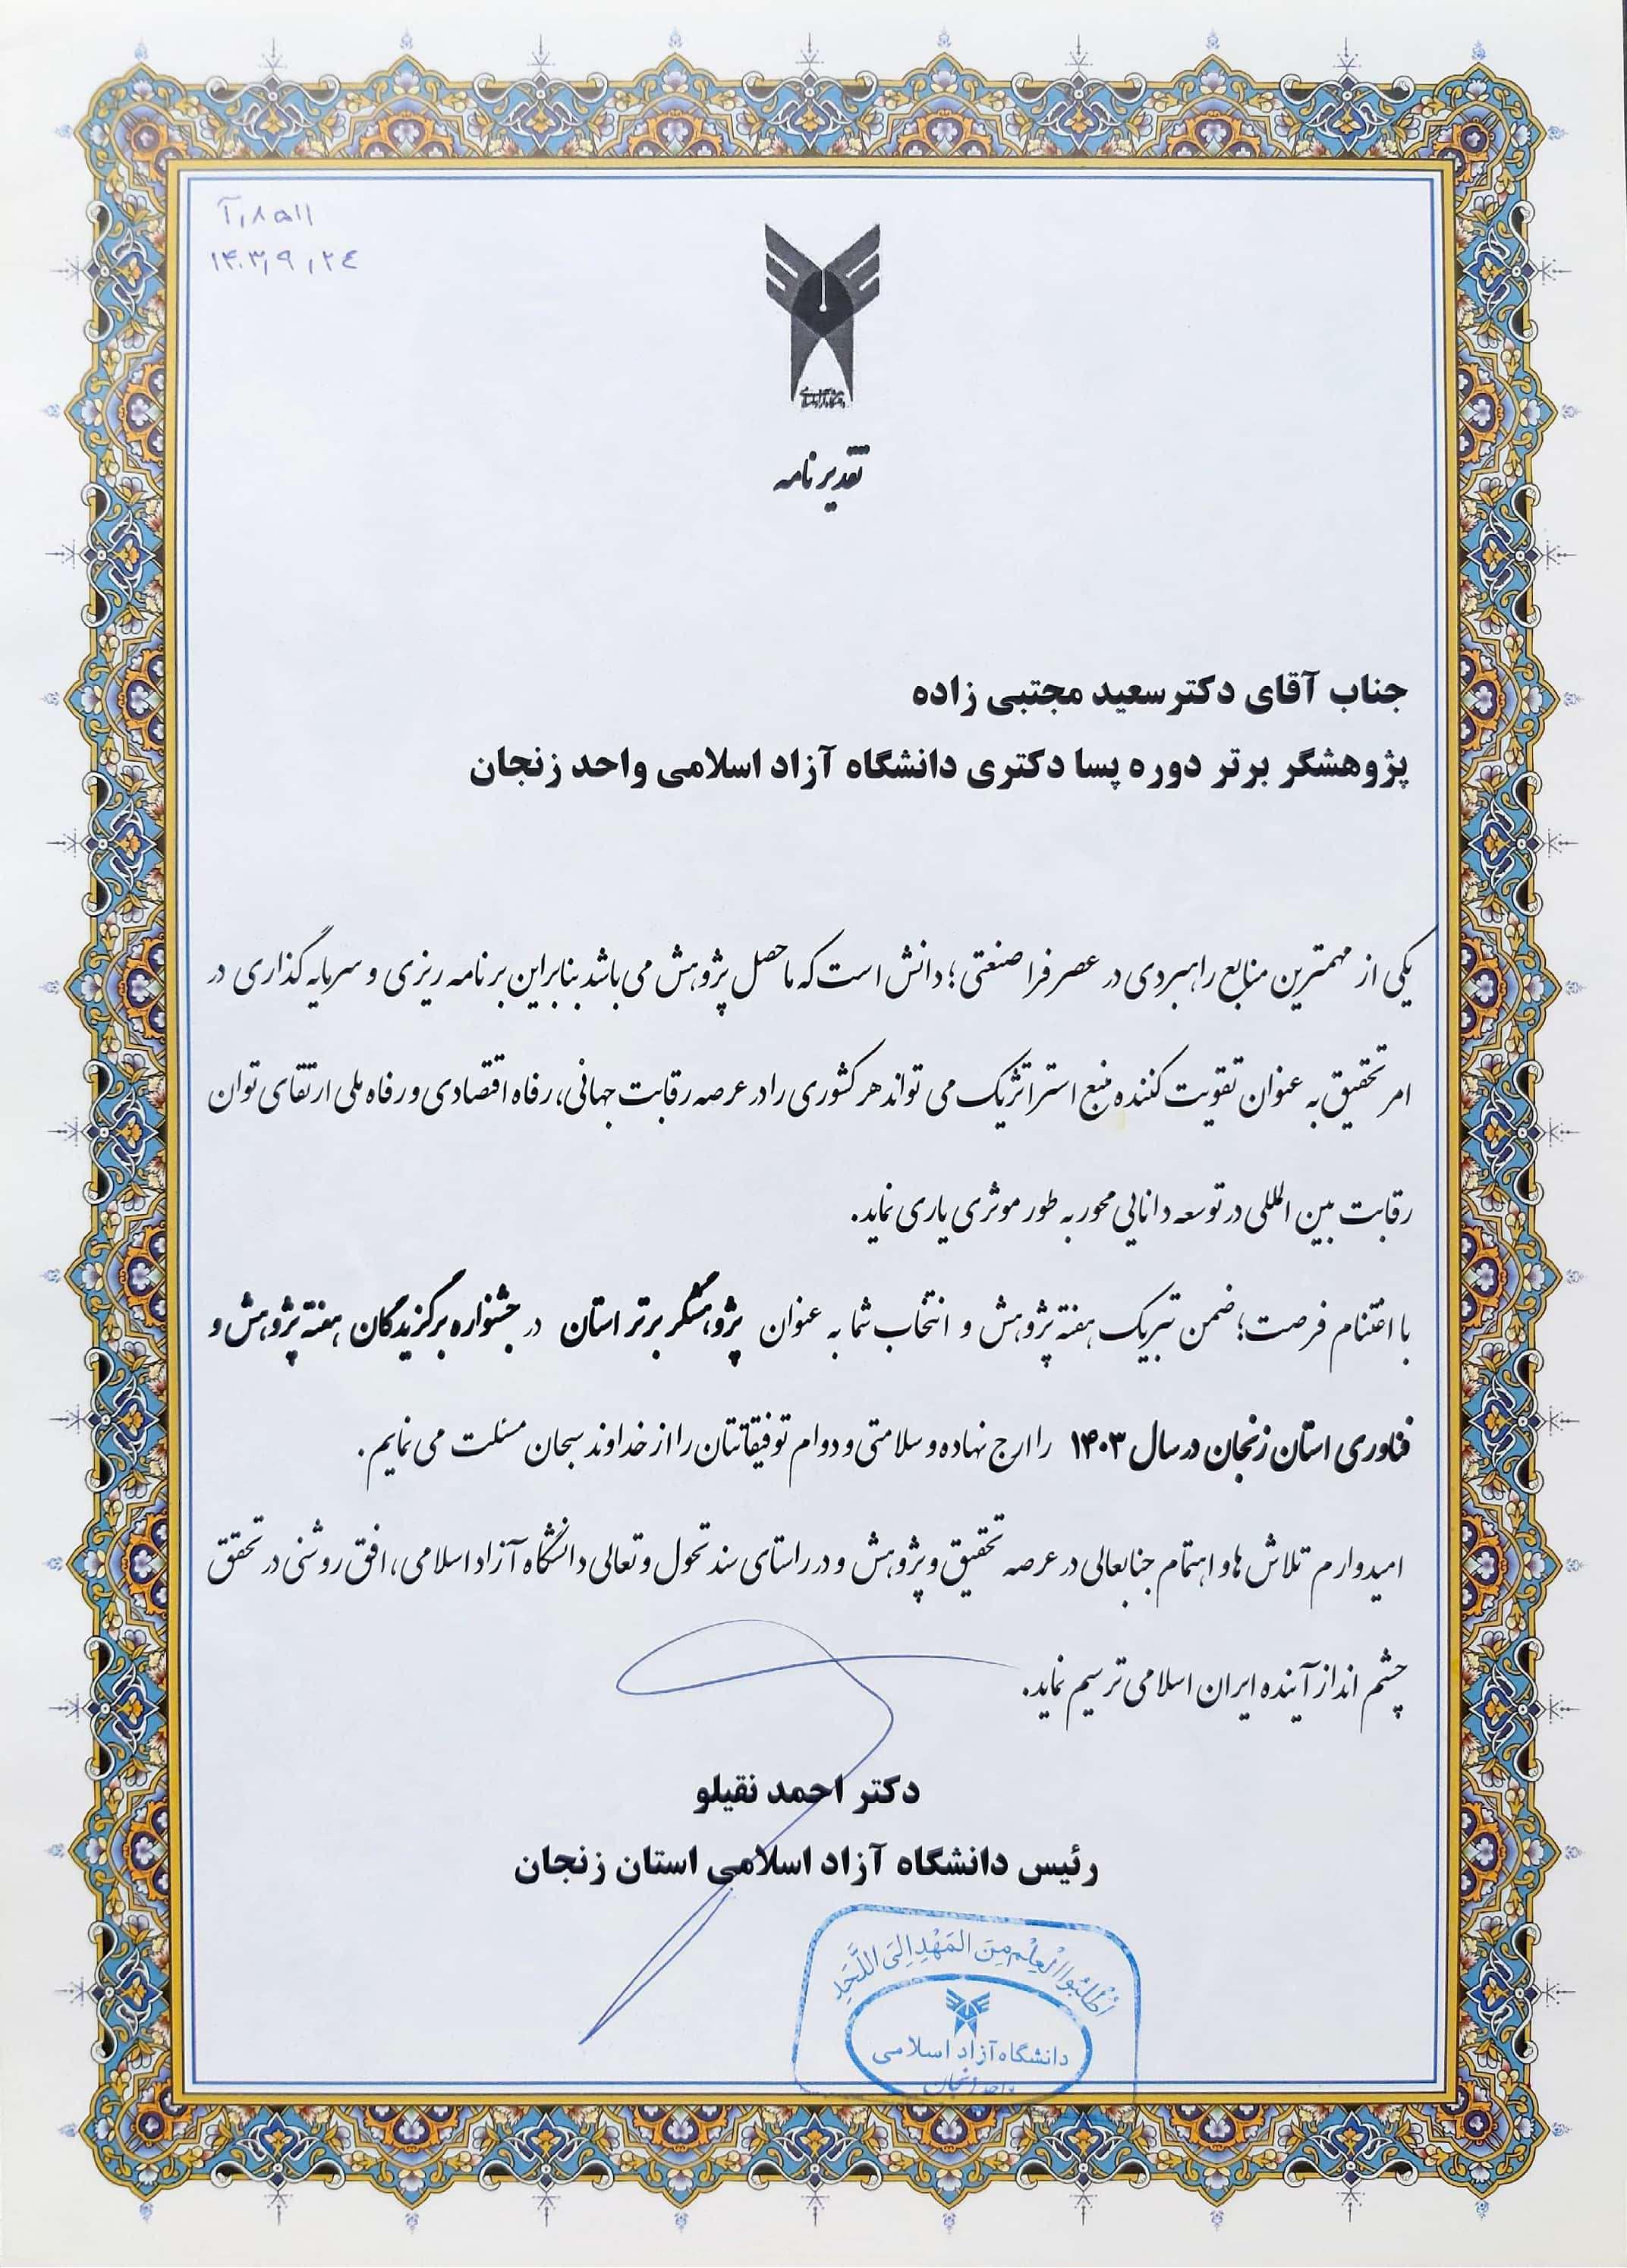 ۱۴۰۳٫۹٫۲۴
تقدیرنامه
جناب آقای دکترسعید مجتبی زاده
پژوهشگر برتر دوره پسا دکتری دانشگاه آزاد اسلامی واحد زنجان
یکی از مهمترین منابع راهبردی در عصر فرا صنعتی؛ دانش است که ماحصل پژوهش می باشد بنابراین برنامه ریزی و سرمایه گذاری در
امر تحقیق به عنوان تقویت کننده منبع استراتژیک می تواند هر کشوری را در عرصه رقابت جهانی، رفاه اقتصادی و رفاه ملی ارتقای توان
رقابت بین المللی در توسعه دانایی محور به طور موثری یاری نماید.
با اغتنام فرصت؛ ضمن تبریک هفته پژوهش و انتخاب شما به عنوان پژوهشگر برتر استان در جشنواره برگزیدگان هفته پژوهش و
فناوری استان زنجان در سال ۱۴۰۳ را ارج نهاده و سلامتی و دوام توفیقاتتان را از خداوند سبحان مسئلت می نمایم.
امیدوارم تلاش ها و اهتمام جنابعالی در عرصه تحقیق و پژوهش و در راستای سند تحول و تعالی دانشگاه آزاد اسلامی، افق روشنی در تحقق
چشم انداز آینده ایران اسلامی ترسیم نماید.
دکتر احمد نقیلو
رئیس دانشگاه آزاد اسلامی استان زنجان
اُطْلُبُوا الْعِلْمَ مِنَ الْمَهْدِ اِلَی اللَّحَدِ
دانشگاه آزاد اسلامی
واحد زنجان